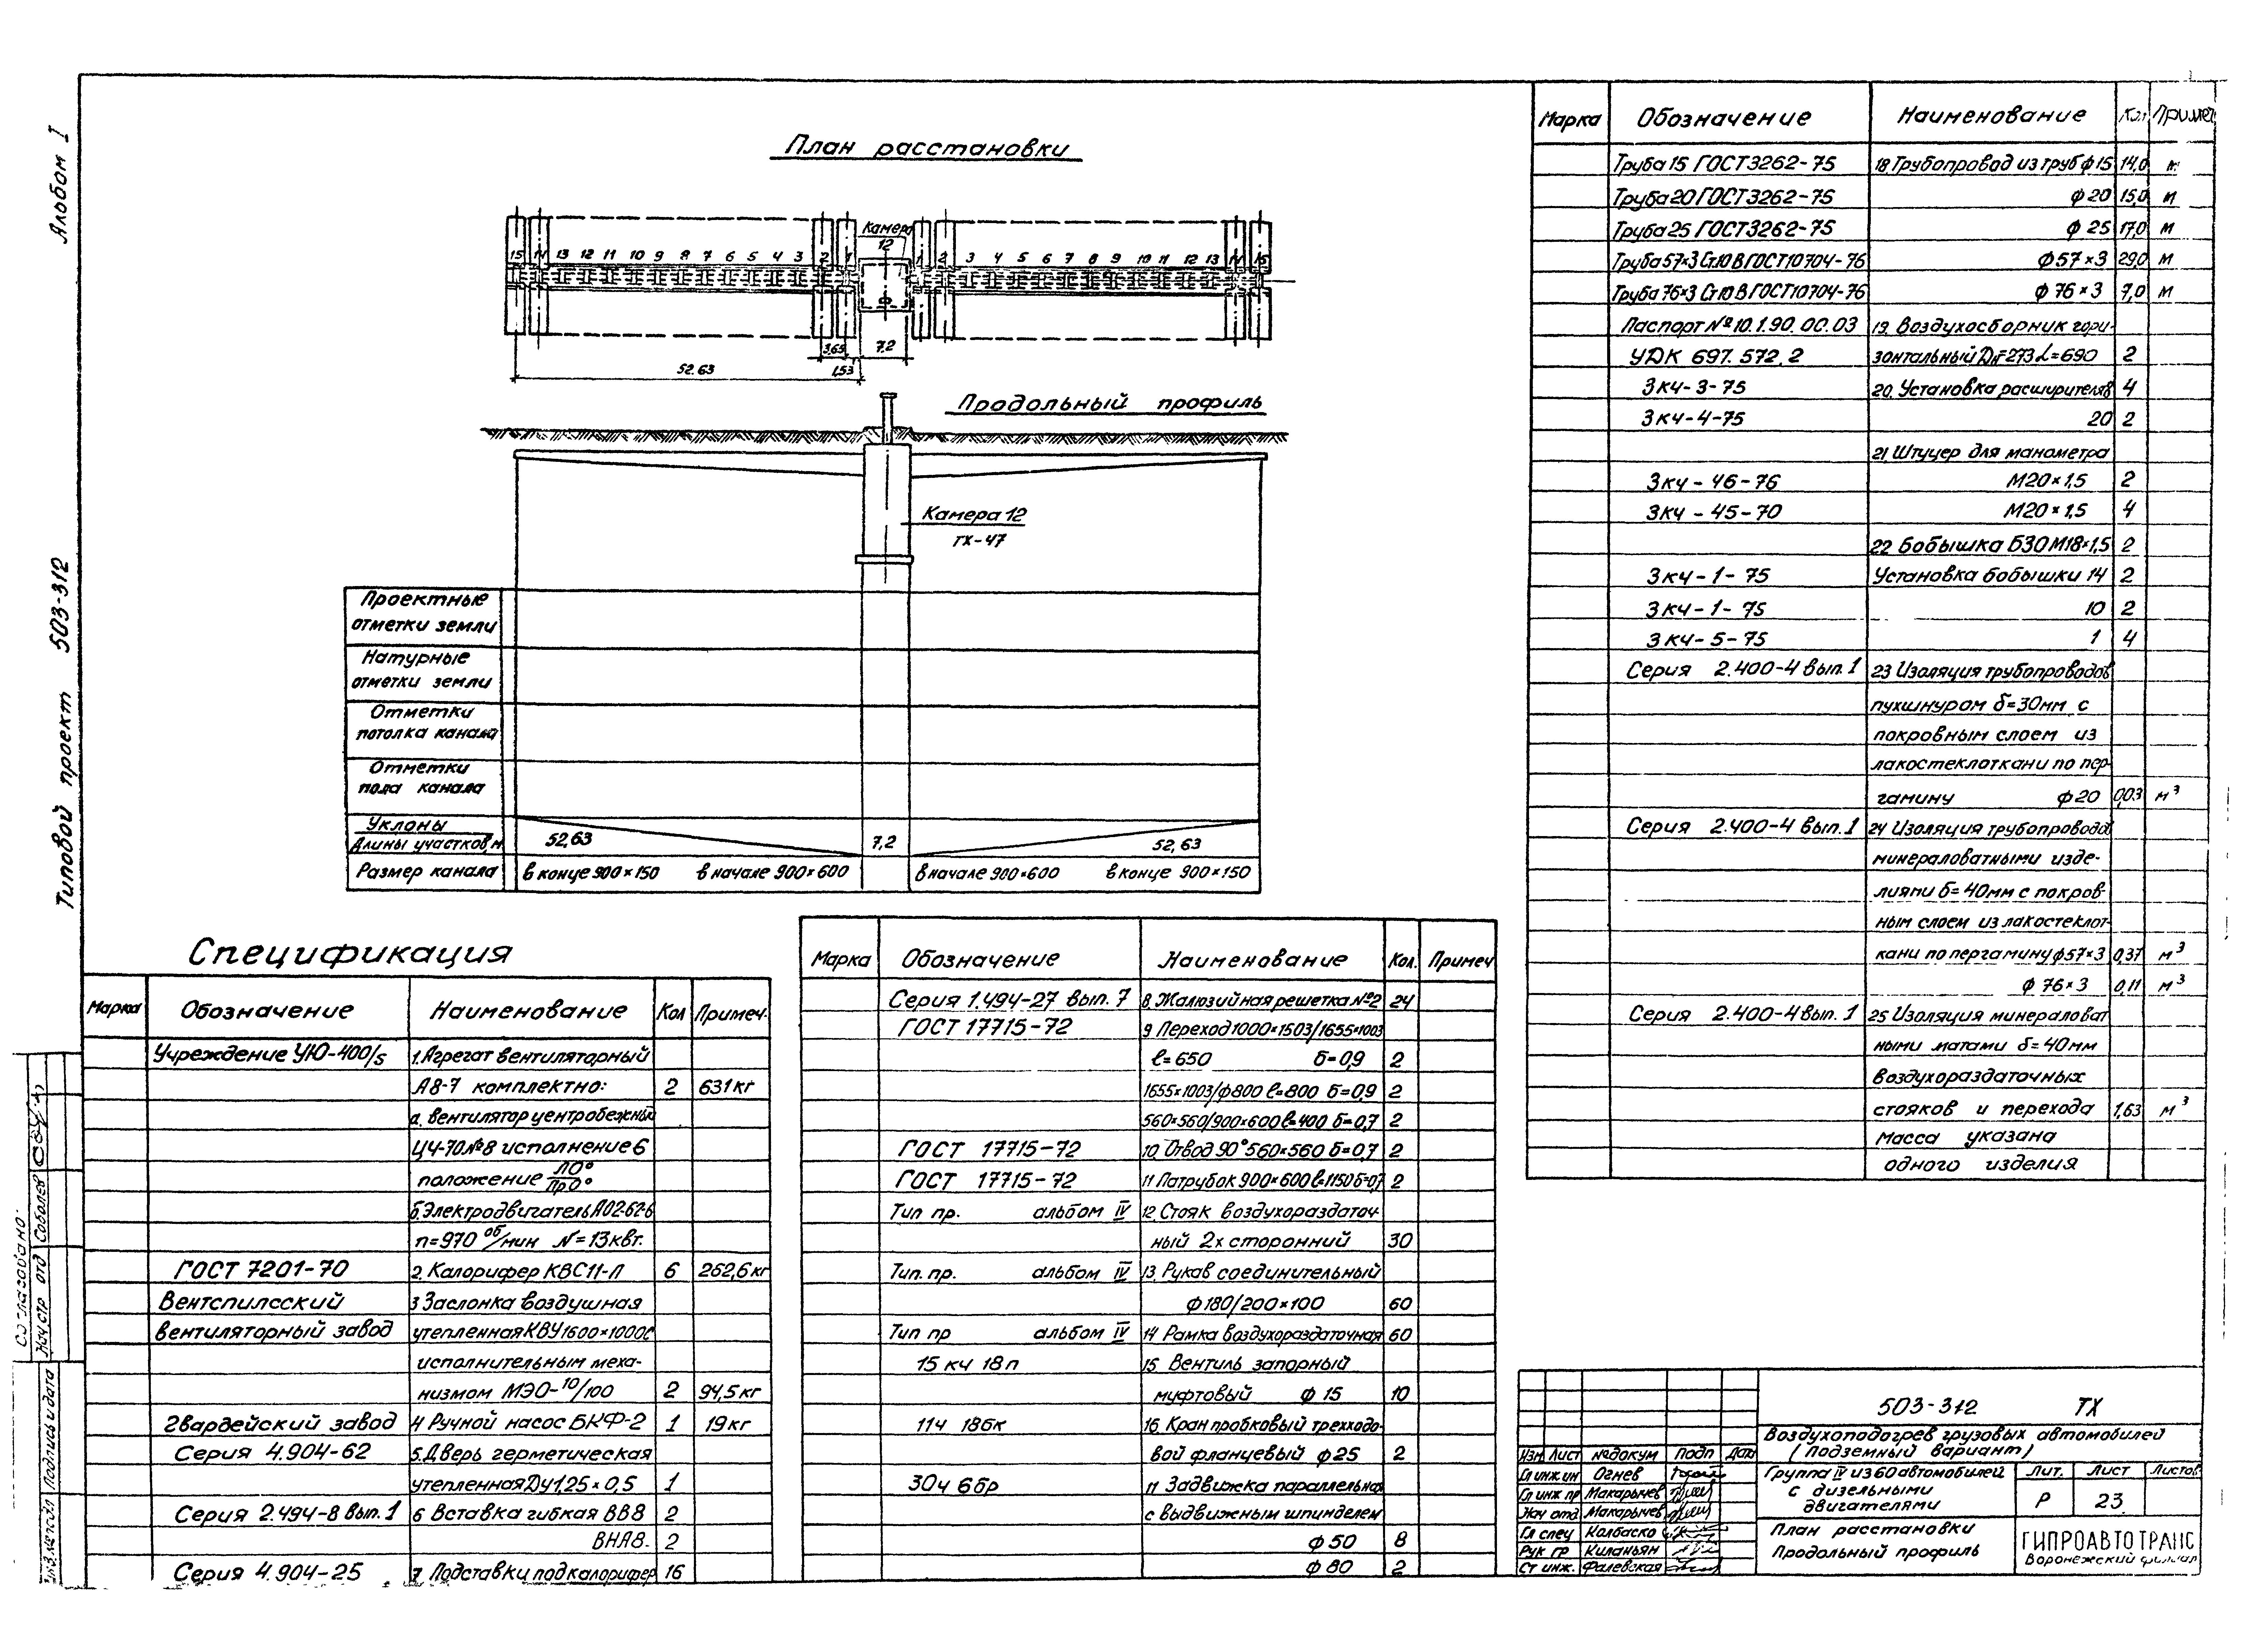 Альбом I
Типовой проект 503-312
План расстановки
Камера
12
15 14 13 12 11 10 9 8 7 6 5 4 3 2 1
1 2 3 4 5 6 7 8 9 10 11 12 13 14 15
3,65 7,2
52.63 1,53
Продольный профиль
Камера 12
ТХ-47
Проектные
отметки земли
Натурные
отметки земли
Отметки
потолка канала
Отметки
пола канала
Уклоны
Длины участков м
52,63 7,2 52,63
Размер канала в конце 900×150 в начале 900×600 в начале 900×600 в конце 900×150
Спецификация
Марка Обозначение Наименование Кол Примеч.
Учреждение УЮ-400/s 1. Агрегат вентиляторный
А8-7 комплектно: 2 631 кг
а. вентилятор центробежный
Ц4-70№8 исполнение 6
положение ЛО°/ПрО°
б. Электродвигатель АО2-62-6
n=970 об/мин N=13квт.
ГОСТ 7201-70 2. Калорифер КВС11-П 6 262,6 кг
Вентспилсский 3 Заслонка воздушная
вентиляторный завод утепленная КВУ1600×1000С
исполнительным меха-
низмом МЭО-10/100 2 94,5 кг
Гвардейский завод 4 Ручной насос БКФ-2 1 19 кг
Серия 4.904-62 5. Дверь герметическая
утепленная ДУ1,25×0,5 1
Серия 2.494-8 вып. 1 6 Вставка гибкая ВВ8 2
ВНА8. 2
Серия 4.904-25 7. Подставки под калорифер 16
Марка Обозначение Наименование Кол. Примеч
Серия 1.494-27 вып. 7 8. Жалюзийная решетка №2 24
ГОСТ 17715-72 9 Переход 1000×1503/1655×1003
ℓ=650 δ=0,9 2
1655×1003/ф800 ℓ=800 δ=0,9 2
560×560/900×600 ℓ=400 δ=0,7 2
ГОСТ 17715-72 10. Отвод 90° 560×560 δ=0,7 2
ГОСТ 17715-72 11 Патрубок 900×600 ℓ=1150 δ=0,7 2
Тип пр. альбом IV 12. Стояк воздухораздаточ-
ный 2х сторонний 30
Тип. пр. альбом IV 13. Рукав соединительный
ф180/200×100 60
Тип пр альбом IV 14 Рамка воздухораздаточная 60
15 кч 18п 15. Вентиль запорный
муфтовый ф 15 10
11ч 18бк 16. Кран пробковый трехходо-
вой фланцевый ф25 2
30ч 6бр 17 Задвижка параллельная
с выдвижным шпинделем
ф 50 8
ф 80 2
Марка Обозначение Наименование Кол Примеч
Труба 15 ГОСТ 3262-75 18 Трубопровод из труб ф 15 14,0 м
Труба 20 ГОСТ 3262-75 ф 20 15,0 м
Труба 25 ГОСТ 3262-75 ф 25 17,0 м
Труба 57×3 Ст10 В ГОСТ 10704-76 ф57×3 29,0 м
Труба 76×3 Ст10 В ГОСТ 10704-76 ф 76×3 7,0 м
Паспорт №10.1.90.00.03 19. Воздухосборник гори-
УДК 697.572.2 зонтальный Дн=273 L=690 2
3кч-3-75 20. Установка расширителя 4
3кч-4-75 20 2
21. Штуцер для манометра
3кч-46-76 М20×1,5 2
3кч-45-70 М20×1,5 4
22 Бобышка Б30 М18×1,5 2
3кч-1-75 Установка бобышки 14 2
3кч-1-75 10 2
3кч-5-75 1 4
Серия 2.400-4 вып. 1 23 Изоляция трубопроводов
пухшнуром δ=30мм с
покровным слоем из
лакостеклоткани по пер-
гамину ф 20 0,03 м³
Серия 2.400-4 вып. 1 24 Изоляция трубопроводов
минераловатными изде-
лиями δ=40мм с покров-
ным слоем из лакостеклот-
кани по пергамину ф57×3 0,37 м³
ф 76×3 0,11 м³
Серия 2.400-4 вып. 1 25 Изоляция минераловат
ными матами δ=40мм
воздухораздаточных
стояков и перехода 1,63 м³
Масса указана
одного изделия
503-312 ТХ
Воздухоподогрев грузовых автомобилей
(подземный вариант)
Изм Лист №докум Подп Дата
Гл инж ин Огнев
Гл инж пр Макарычев
Нач отд Макарычев
Гл спец Колбаско
Рук гр Киланьян
Ст инж. Фалевская
Группа IV из 60 автомобилей
с дизельными
двигателями
Лит. Лист Листов
Р 23
План расстановки
Продольный профиль
ГИПРОАВТОТРАНС
Воронежский филиал
Согласовано:
Нач стр отд Соболев
Подпись и дата